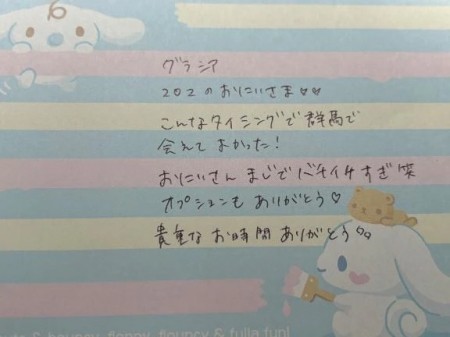 グラシア
202のおにいさま♡♡
こんなタイミングで群馬で
会えてよかった！
おにいさん まじでバチイケすぎ笑
オプションも ありがとう♡
貴重な お時間 ありがとう♡♡
& bouncy, flappy, flouncy & fulla fun!